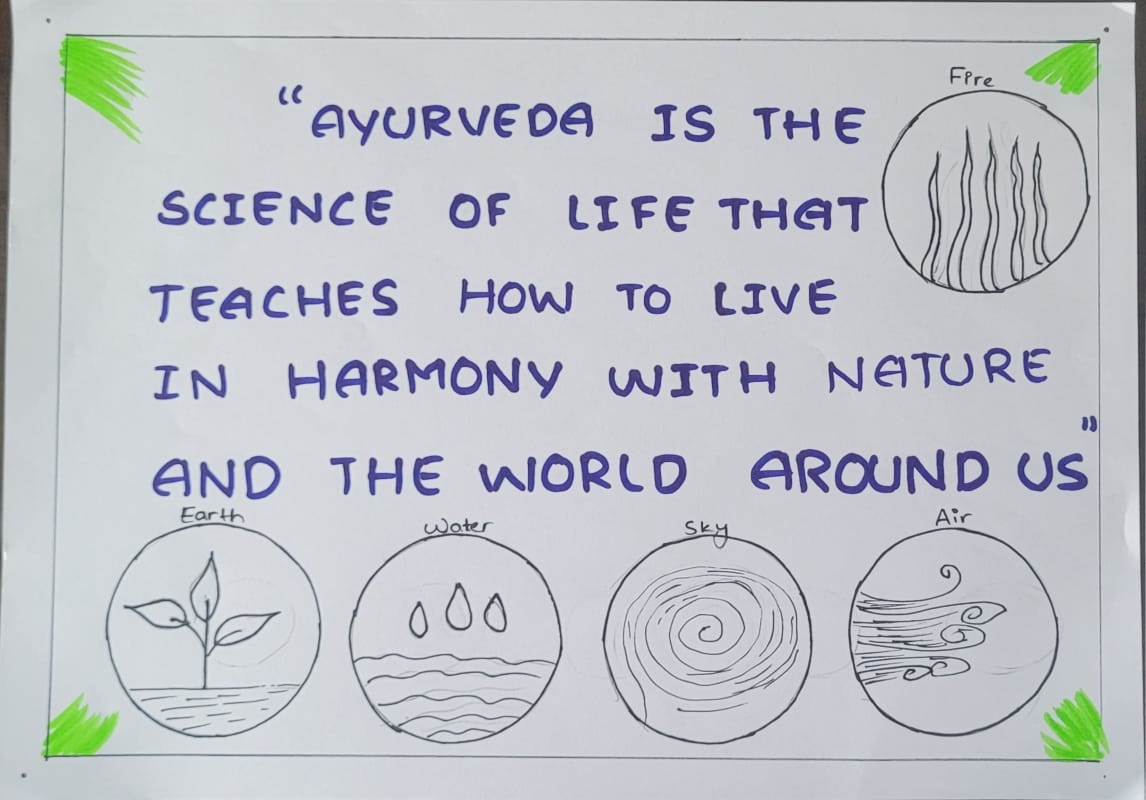 Fire
"AYURVEDA IS THE
SCIENCE OF LIFE THAT
TEACHES HOW TO LIVE
IN HARMONY WITH NATURE
AND THE WORLD AROUND US"
Earth
Water
Sky
Air